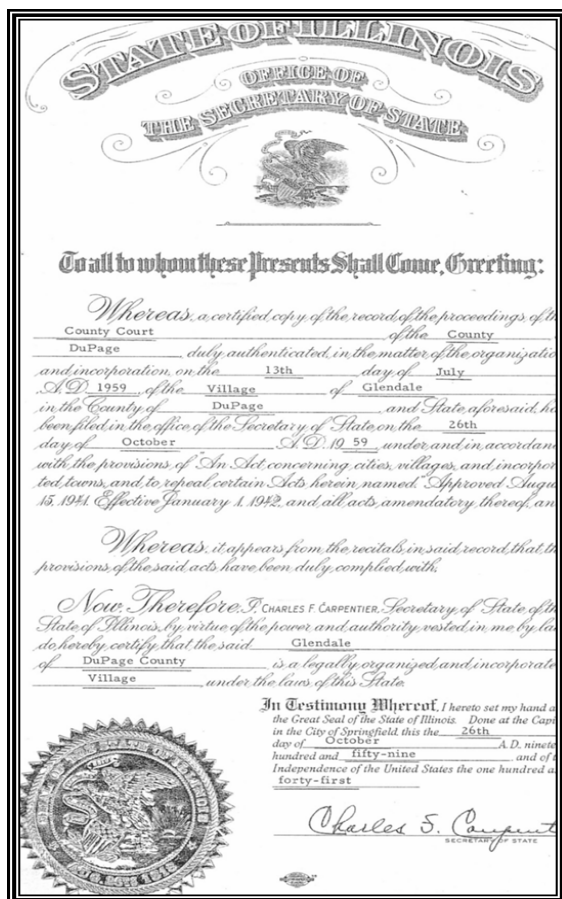 STATE OF ILLINOIS
OFFICE OF
THE SECRETARY OF STATE
To all to whom these Presents Shall Come, Greeting:
Whereas, a certified copy of the record of the proceedings, of th
County Court of the County
DuPage duly authenticated, in the matter of the organizatio
and incorporation, on the 13th day of July
A.D. 1959 of the Village of Glendale
in the County of DuPage and State, aforesaid, ha
been filed in the office of the Secretary of State, on the 26th
day of October A.D. 19 59 under and in accordan
with the provisions of "An Act concerning cities, villages, and incorpor
ted towns, and to repeal certain Acts herein named." Approved Augu
15, 1941. Effective January 1, 1942, and all acts amendatory thereof, an
Whereas, it appears from the recitals in said record, that th
provisions of the said acts have been duly complied with.
Now Therefore, I, CHARLES F. CARPENTIER, Secretary of State of th
State of Illinois, by virtue of the power and authority vested in me by law
do hereby certify that the said Glendale
of DuPage County is a legally organized and incorporate
Village under the laws of this State.
In Testimony Whereof, I hereto set my hand a
the Great Seal of the State of Illinois. Done at the Capi
in the City of Springfield, this the 26th
day of October A.D. ninete
hundred and fifty-nine and of t
Independence of the United States the one hundred a
forty-first
Charles F. Carpent
SECRETARY OF STATE